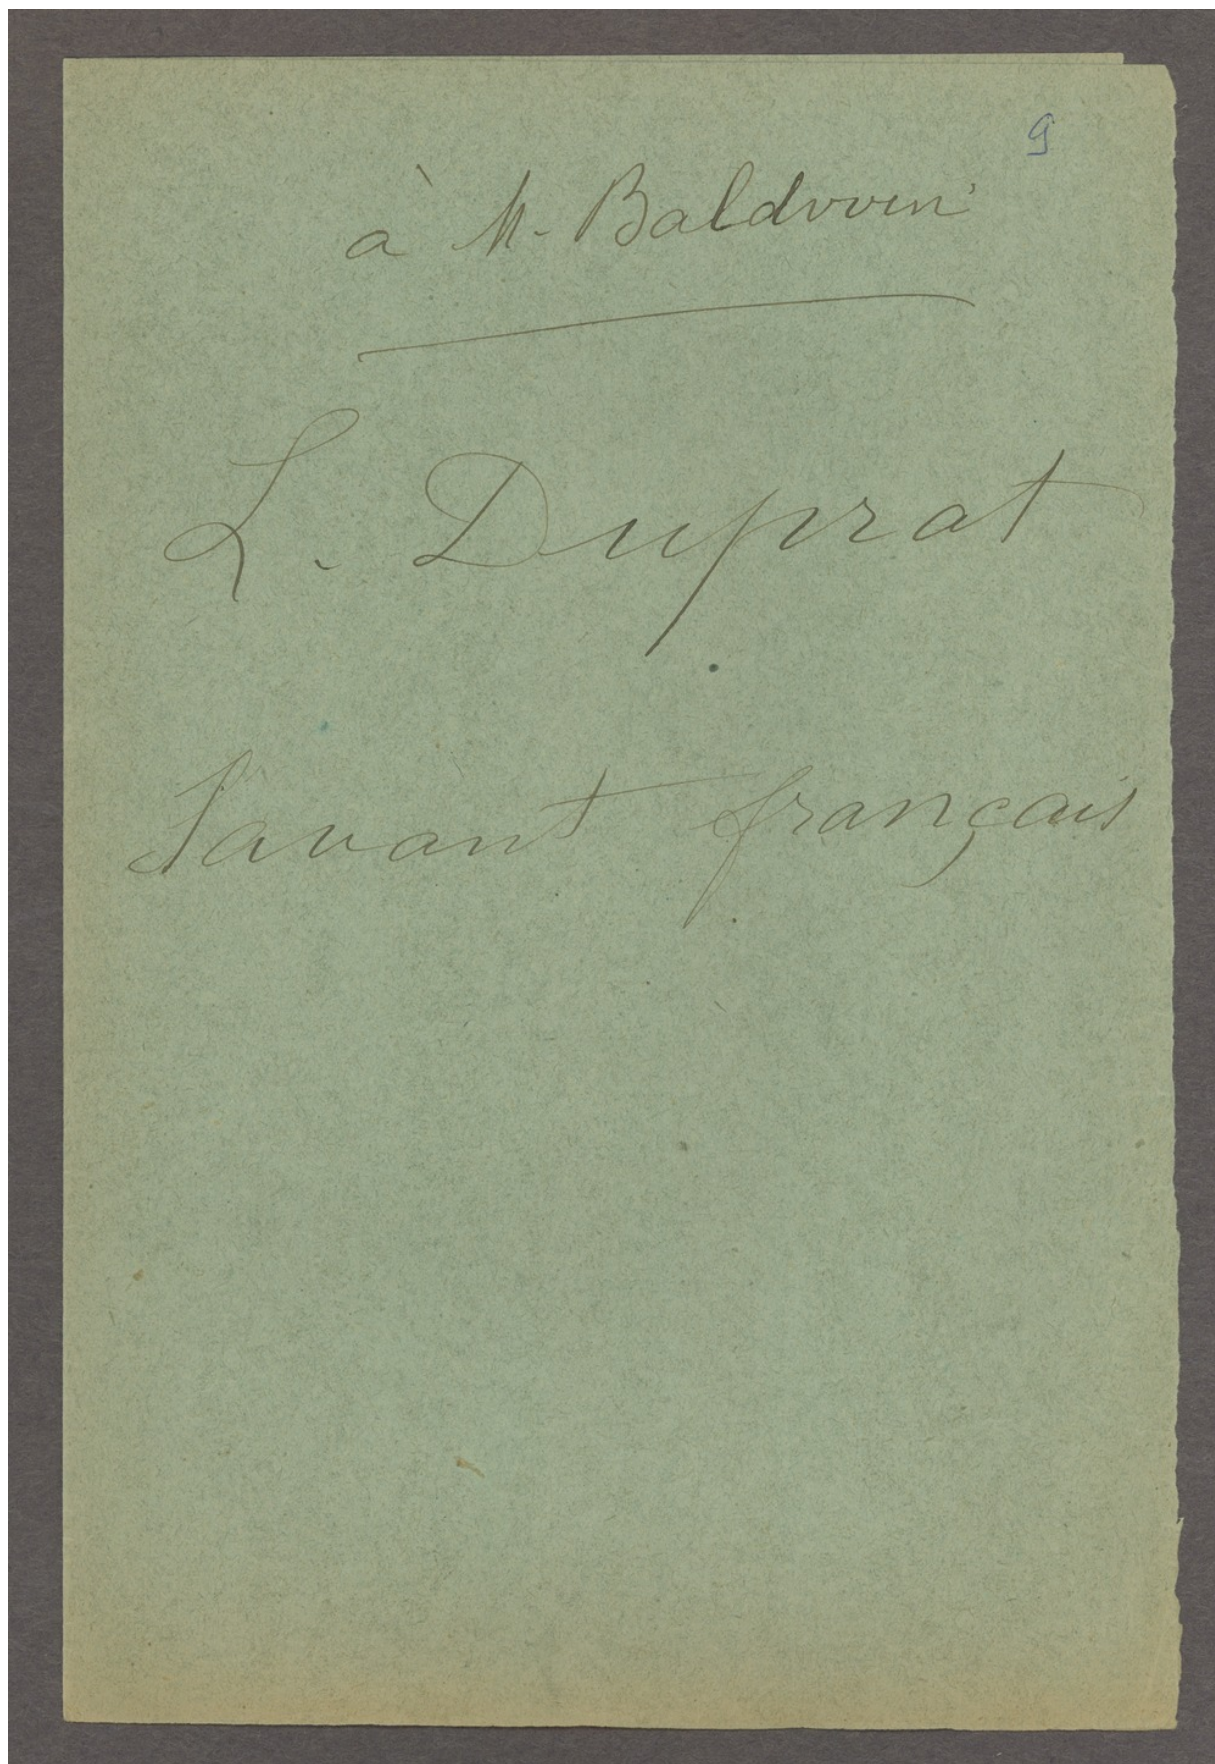 9
à M. Baldwin
L. Duprat
Savant français